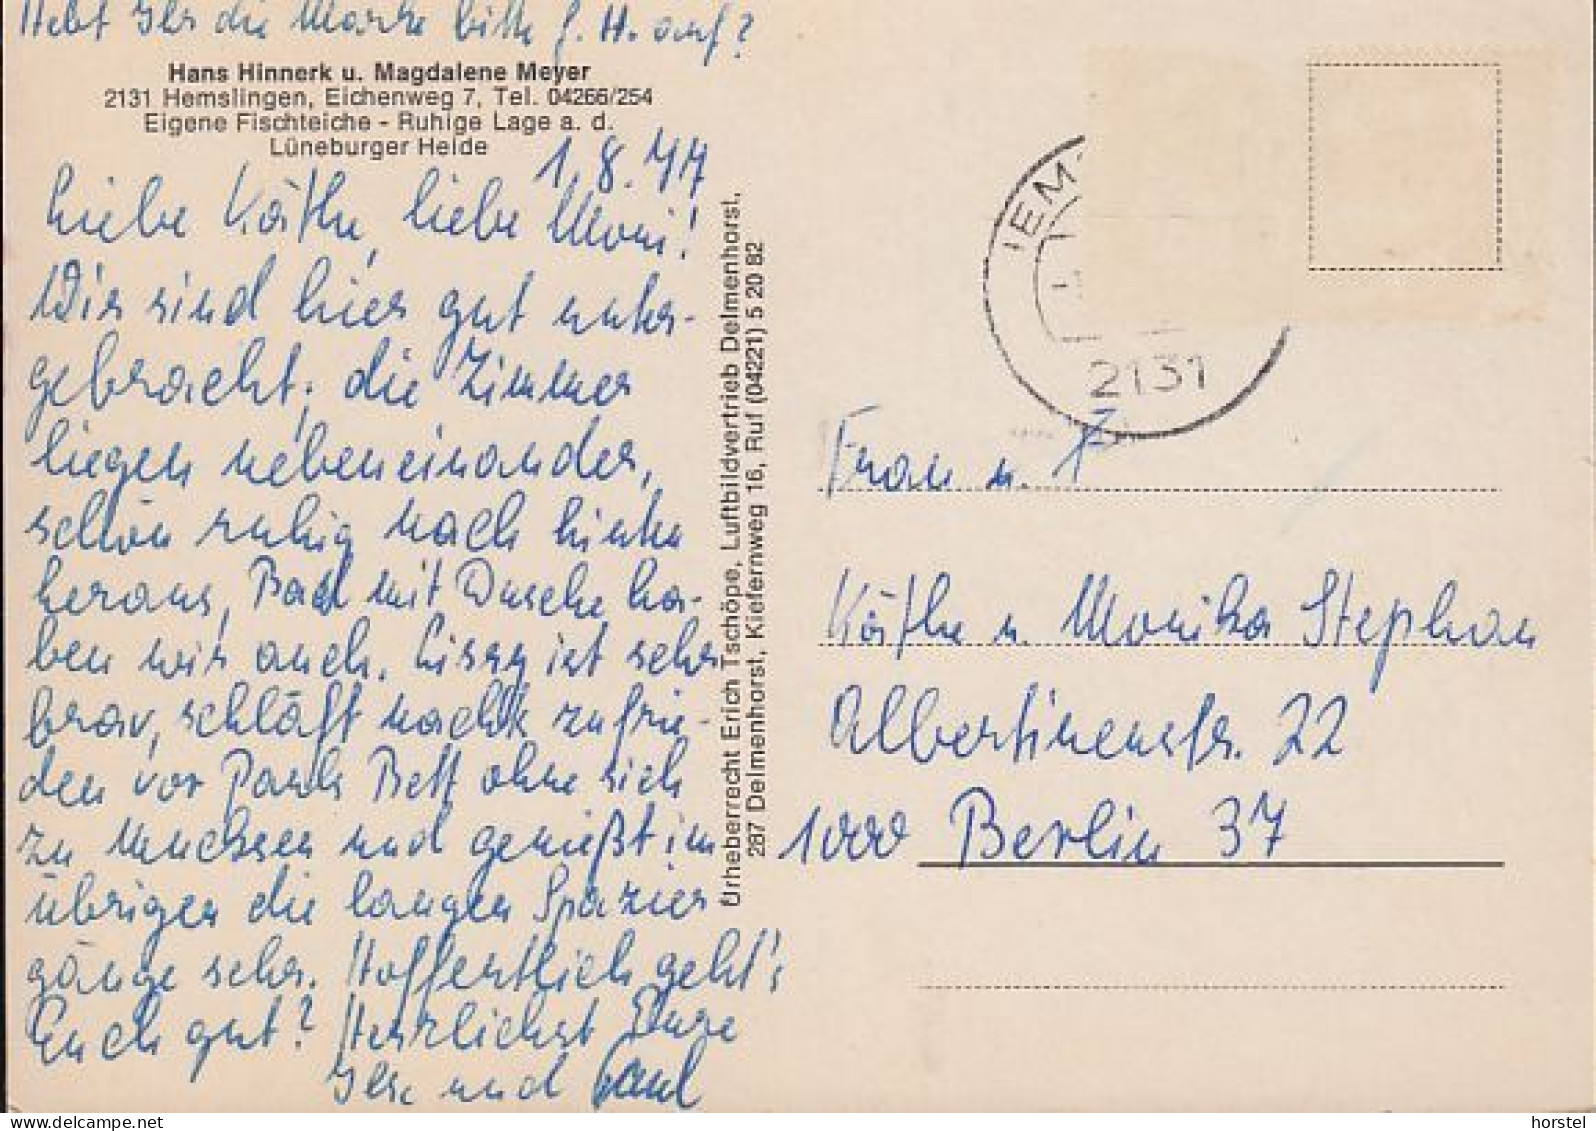 Hebt Ihr die Marke bitte f. H. auf?
Hans Hinnerk u. Magdalene Meyer
2131 Hemslingen, Eichenweg 7, Tel. 04266/254
Eigene Fischteiche - Ruhige Lage a. d.
Lüneburger Heide
1.8.77
Liebe Käthe, liebe Moni!
Wir sind hier gut unter-
gebracht; die Zimmer
liegen nebeneinander,
schön ruhig nach hinten
heraus, Bad mit Dusche ha-
ben wir auch. Cissy ist sehr
brav, schläft nachts zufrie-
den vor Pauls Bett ohne sich
zu mucksen und genießt im
übrigen die langen Spazier
gänge sehr. Hoffentlich geht's
Euch gut? Herzlichst Eure
Ilse und Paul
Urheberrecht Erich Tschöpe, Luftbildvertrieb Delmenhorst,
287 Delmenhorst, Kiefernweg 16, Ruf (04221) 5 20 82
HEMS
2131
Frau u. F
Käthe u. Monika Stephan
Albertinenstr. 22
1000 Berlin 37
delcampe.net
horstel